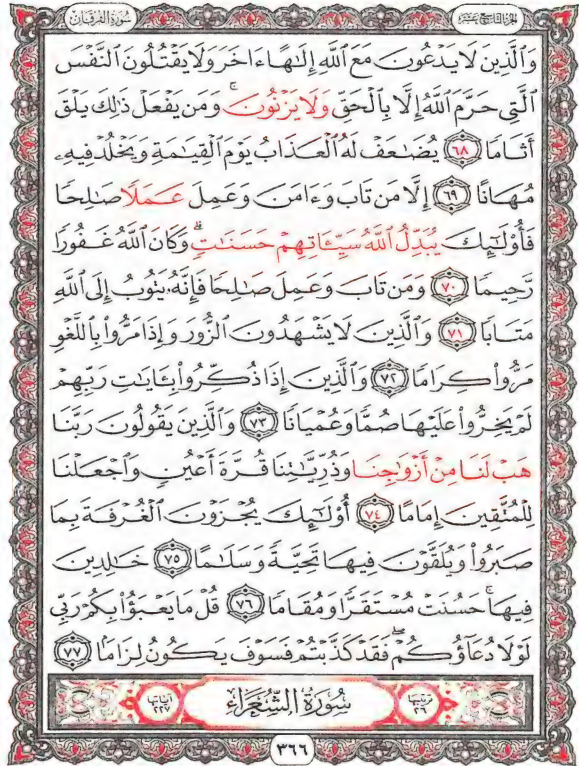 سُورَةُ الْفُرْقَانِ
الجُزْءُ التَّاسِعَ عَشَرَ
وَالَّذِينَ لَا يَدْعُونَ مَعَ اللَّهِ إِلَـٰهًا ءَاخَرَ وَلَا يَقْتُلُونَ النَّفْسَ
الَّتِي حَرَّمَ اللَّهُ إِلَّا بِالْحَقِّ وَلَا يَزْنُونَ ۚ وَمَن يَفْعَلْ ذَٰلِكَ يَلْقَ
أَثَامًا ٦٨ يُضَـٰعَفْ لَهُ الْعَذَابُ يَوْمَ الْقِيَـٰمَةِ وَيَخْلُدْ فِيهِۦ
مُهَانًا ٦٩ إِلَّا مَن تَابَ وَءَامَنَ وَعَمِلَ عَمَلًا صَـٰلِحًا
فَأُوْلَـٰٓئِكَ يُبَدِّلُ اللَّهُ سَيِّـَٔاتِهِمْ حَسَنَـٰتٍ ۗ وَكَانَ اللَّهُ غَفُورًا
رَّحِيمًا ٧٠ وَمَن تَابَ وَعَمِلَ صَـٰلِحًا فَإِنَّهُۥ يَتُوبُ إِلَى اللَّهِ
مَتَابًا ٧١ وَالَّذِينَ لَا يَشْهَدُونَ الزُّورَ وَإِذَا مَرُّواْ بِاللَّغْوِ
مَرُّواْ كِرَامًا ٧٢ وَالَّذِينَ إِذَا ذُكِّرُواْ بِـَٔايَـٰتِ رَبِّهِمْ
لَمْ يَخِرُّواْ عَلَيْهَا صُمًّا وَعُمْيَانًا ٧٣ وَالَّذِينَ يَقُولُونَ رَبَّنَا
هَبْ لَنَا مِنْ أَزْوَٰجِنَا وَذُرِّيَّـٰتِنَا قُرَّةَ أَعْيُنٍ وَاجْعَلْنَا
لِلْمُتَّقِينَ إِمَامًا ٧٤ أُوْلَـٰٓئِكَ يُجْزَوْنَ الْغُرْفَةَ بِمَا
صَبَرُواْ وَيُلَقَّوْنَ فِيهَا تَحِيَّةً وَسَلَـٰمًا ٧٥ خَـٰلِدِينَ
فِيهَا ۚ حَسُنَتْ مُسْتَقَرًّا وَمُقَامًا ٧٦ قُلْ مَا يَعْبَؤُاْ بِكُمْ رَبِّي
لَوْلَا دُعَآؤُكُمْ ۖ فَقَدْ كَذَّبْتُمْ فَسَوْفَ يَكُونُ لِزَامًا ٧٧
ترتيبها ٢٦ سُورَةُ الشُّعَرَاءِ آياتها ٢٢٧
٣٦٦